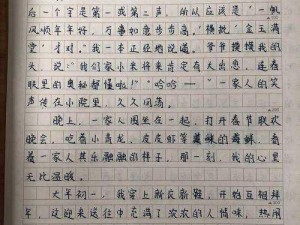 后一个字是第一或第二声，所以应该是“一帆
风顺年年好，万事如意步步高，”横批‘金玉满
堂’才对。”我一本正经地说道。爷爷摸摸我的
头，说“我们家小米将来肯定有大出息，连春
联里的奥秘都懂啦！”“哈哈——”一家人的笑
声传在小院里，久久回荡。
晚上，一家人围坐在一起，打开春节联欢
晚会，吃着小青龙，皮皮虾等美味的海鲜，看
着一家人其乐融融的样子，那一刻，我的心里
无比温暖。
大年初一，我穿上新衣新鞋，开始互相拜
年，这迎来送往中充满了浓浓的人情味，热闹